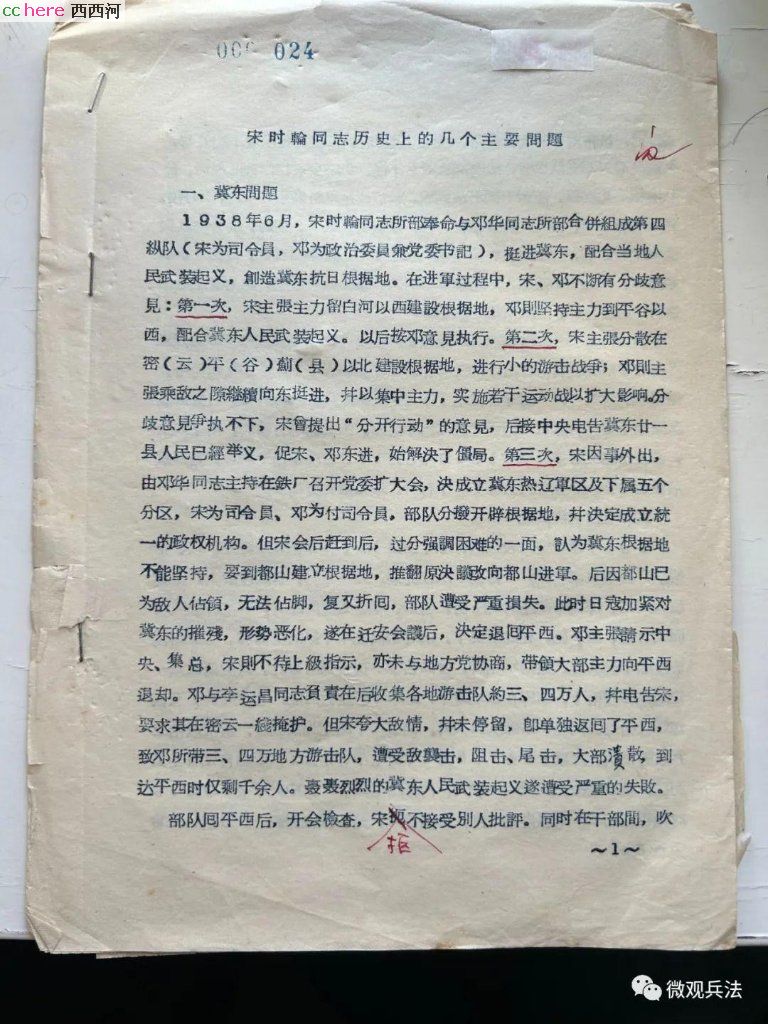 cchere 西西河
00C 024
宋时輪同志历史上的几个主要問題
一、冀东問題
1938年6月，宋时輪同志所部奉命与邓华同志所部合併組成第四
纵队（宋为司令員，邓为政治委員兼党委书記），挺进冀东，配合当地人
民武装起义，創造冀东抗日根据地。在进軍过程中，宋、邓不断有分歧意
見：第一次，宋主張主力留白河以西建設根据地，邓則坚持主力到平谷以
西，配合冀东人民武装起义。以后按邓意見执行。第二次，宋主張分散在
密（云）平（谷）蓟（县）以北建設根据地，进行小的游击战争；邓則主
張乘敌之隙继續向东挺进，幷以集中主力，实施若干运动战以扩大影响。分
歧意見争执不下，宋曾提出“分开行动”的意見，后接中央电告冀东廿一
县人民已經举义，促宋、邓东进，始解决了僵局。第三次，宋因事外出，
由邓华同志主持在鉄厂召开党委扩大会，决成立冀东热辽軍区及下属五个
分区，宋为司令員、邓为付司令員，部队分撥开辟根据地，幷决定成立統
一的政权机构。但宋会后赶到后，过分强調困难的一面，訒为冀东根据地
不能坚持，要到都山建立根据地，推翻原决議改向都山进軍。后因都山已
为敌人佔領，无法佔脚，复又折囘，部队遭受严重损失。此时日寇加紧对
冀东的摧殘，形势恶化，遂在迁安会議后，决定退囘平西。邓主張請示中
央、集总，宋則不待上級指示，亦未与地方党协商，带領大部主力向平西
退却。邓与李运昌同志負責在后收集各地游击队約三、四万人，幷电告宋，
要求其在密云一綫掩护。但宋夸大敌情，幷未停留，卽单独返囘了平西，
致邓所带三、四万地方游击队，遭受敌襲击，阻击、尾击，大部潰散，到
达平西时仅剩千余人。轰轰烈烈的冀东人民武装起义遂遭受严重的失敗。
部队囘平西后，开会检查，宋拒不接受別人批評。同时在干部間，吹
～1～
微观兵法